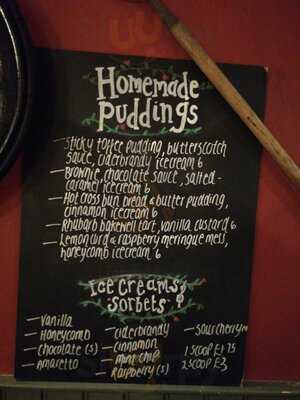 Homemade
Puddings
- Sticky toffee pudding, butterscotch
sauce, ciderbrandy icecream 6
- Brownie, chocolate sauce, salted-
caramel icecream 6
- Hot cross bun bread & butter pudding,
cinnamon icecream 6
- Rhubarb bakewell tart, vanilla custard 6
- Lemon curd & raspberry meringue mess,
honeycomb icecream 6
Ice Creams &
sorbets
- Vanilla
- Honeycomb
- Chocolate (s)
- Amaretto
- Ciderbrandy
- Cinnamon
- Mint chip
- Raspberry (s)
- Sourcherry
1 scoop £1.75
2 scoop £3